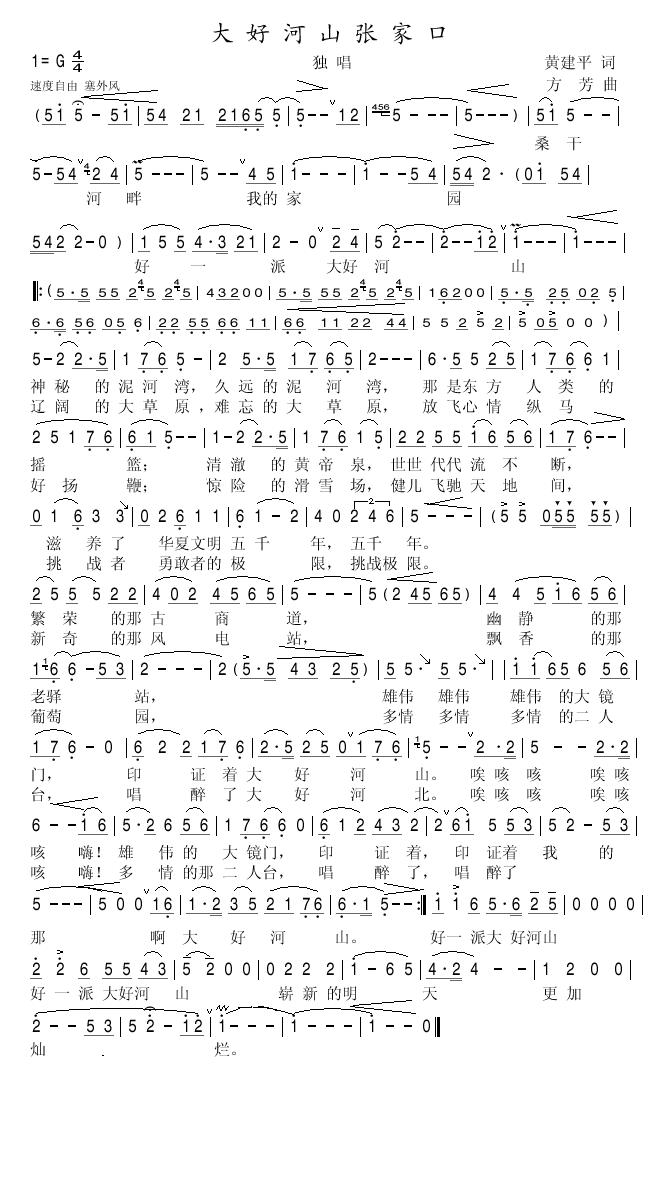 大好河山张家口
1=G 4/4 独 唱 黄建平 词
速度自由 塞外风 方 芳 曲
(5i 5 - 5i | 54 21 2165 5 | 5 - - 12 | 456 5 - - - | 5 - - - ) | 5i 5 - - |
桑 干
5 - 54 2 4 | 5 - - - | 5 - - 4 5 | 1 - - - | 1 - - 5 4 | 54 2 · (0i 54 |
河 畔 我的 家 园
542 2 - 0 ) | 1 5 5 4·3 21 | 2 - 0 2 4 | 5 2 - - | 2 - - i2 | i - - - | i - - - |
好 一 派 大好 河 山
‖:(5·5 55 245 245 | 43200 | 5·5 55 245 245 | 16200 | 5·5 25 02 5 |
6·6 56 05 6 | 22 55 66 11 | 66 11 22 44 | 5 5 2 5 2 | 5 05 0 0 ) |
5 - 2 2·5 | 1 7 6 5 - | 2 5·5 1 7 6 5 | 2 - - - | 6·5 5 2 5 | 1 7 6 6 1 |
神 秘 的 泥 河 湾， 久 远 的 泥 河 湾， 那 是 东 方 人 类 的
辽 阔 的 大 草 原 ，难 忘 的 大 草 原， 放 飞心 情 纵 马
2 5 1 7 6 | 6 1 5 - - | 1 - 2 2·5 | 1 7 6 1 5 | 2 2 5 5 i 6 5 6 | i 7 6 - - |
摇 篮； 清 澈 的 黄 帝 泉， 世世 代代 流 不 断，
好 扬 鞭； 惊 险 的 滑 雪 场，健儿 飞驰 天 地 间，
0 1 6 3 3 | 0 2 6 1 1 | 6 1 - 2 | 4 0 2 4 6 | 5 - - - | (5 5 055 55) |
滋 养 了 华夏文明 五 千 年， 五千 年。
挑 战 者 勇敢者的 极 限，挑战极 限。
2 5 5 5 2 2 | 4 0 2 4 5 6 5 | 5 - - - | 5 (2 45 65) | 4 4 5 i 6 56 |
繁 荣 的那 古 商 道， 幽 静 的那
新 奇 的那 风 电 站， 飘 香 的那
1 6 6 - 5 3 | 2 - - - | 2 (5·5 43 25) | 5 5· 5 5· | i i 6 5 6 5 6 |
老驿 站， 雄伟 雄伟 雄伟 的大 镜
葡萄 园， 多情 多情 多情 的二 人
i 7 6 - 0 | 6 2 2 1 7 6 | 2·5 2 5 0 1 7 6 | 5 - - 2·2 | 5 - - 2·2 |
门， 印 证 着 大 好 河 山。 唉 咳 咳 唉 咳
台， 唱 醉 了 大 好 河 北。 唉 咳 咳 唉 咳
6 - - i 6 | 5·2 6 5 6 | 1 7 6 6 0 | 6 1 2 4 3 2 | 2 6i 5 5 3 | 5 2 - 5 3 |
咳 嗨！ 雄 伟 的 大 镜门， 印 证 着， 印 证着 我 的
咳 嗨！ 多 情 的那 二人台， 唱 醉 了，唱 醉了
5 - - - | 5 0 0 i6 | 1·2 3 5 2 1 7 6 | 6·1 5 - - :‖ i i 6 5·6 2 5 | 0 0 0 0 |
那 啊 大 好 河 山。 好一 派大 好河山
2 2 6 5 5 4 3 | 5 2 0 0 | 0 2 2 2 | 1 - 6 5 | 4·2 4 - - | 1 2 0 0 |
好 一 派 大好河 山 崭 新 的明 天 更 加
2 - - 5 3 | 5 2 - i2 | i - - - | i - - - | i - - 0 ‖
灿 . 烂。